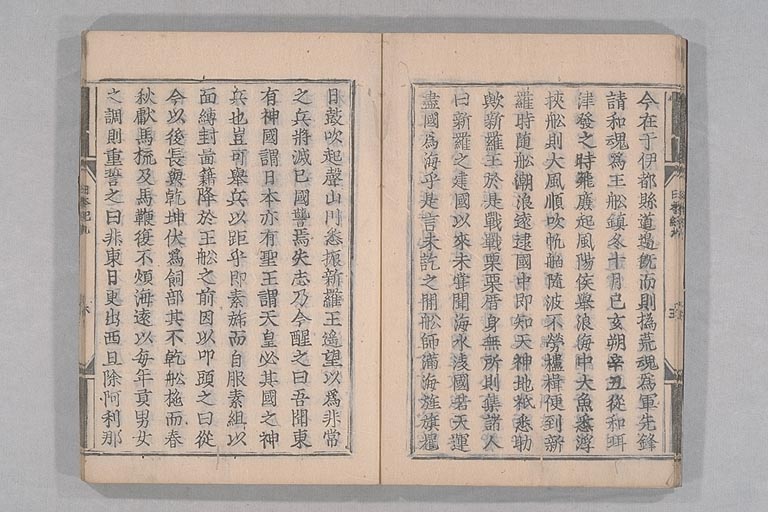 今在于伊都縣道邊既而則撝荒魂爲軍先鋒
請和魂爲王舩鎮冬十月己亥朔辛丑從和珥
津發之時飛廉起風陽侯舉浪海中大魚悉浮
挾舩則大風順吹帆舶隨波不勞櫨楫便到新
羅時隨舩潮浪遠逮國中即知天神地祇悉助
歟新羅王於是戰戰栗栗厝身無所則集諸人
曰新羅之建國以來未嘗聞海水凌國若天運
盡國爲海乎是言未訖之間舩師滿海旌旗耀
日鼓吹起聲山川悉振新羅王遙望以爲非常
之兵將滅己國讋焉失志乃今醒之曰吾聞東
有神國謂日本亦有聖王謂天皇必其國之神
兵也豈可舉兵以距乎即素旆而自服素組以
面縛封啚籍降於王舩之前因以叩頭之曰從
今以後長與乾坤伏爲飼部其不乾舩柂而春
秋獻馬梳及馬鞭復不煩海遠以每年貢男女
之調則重誓之曰非東日更出西且除阿利那